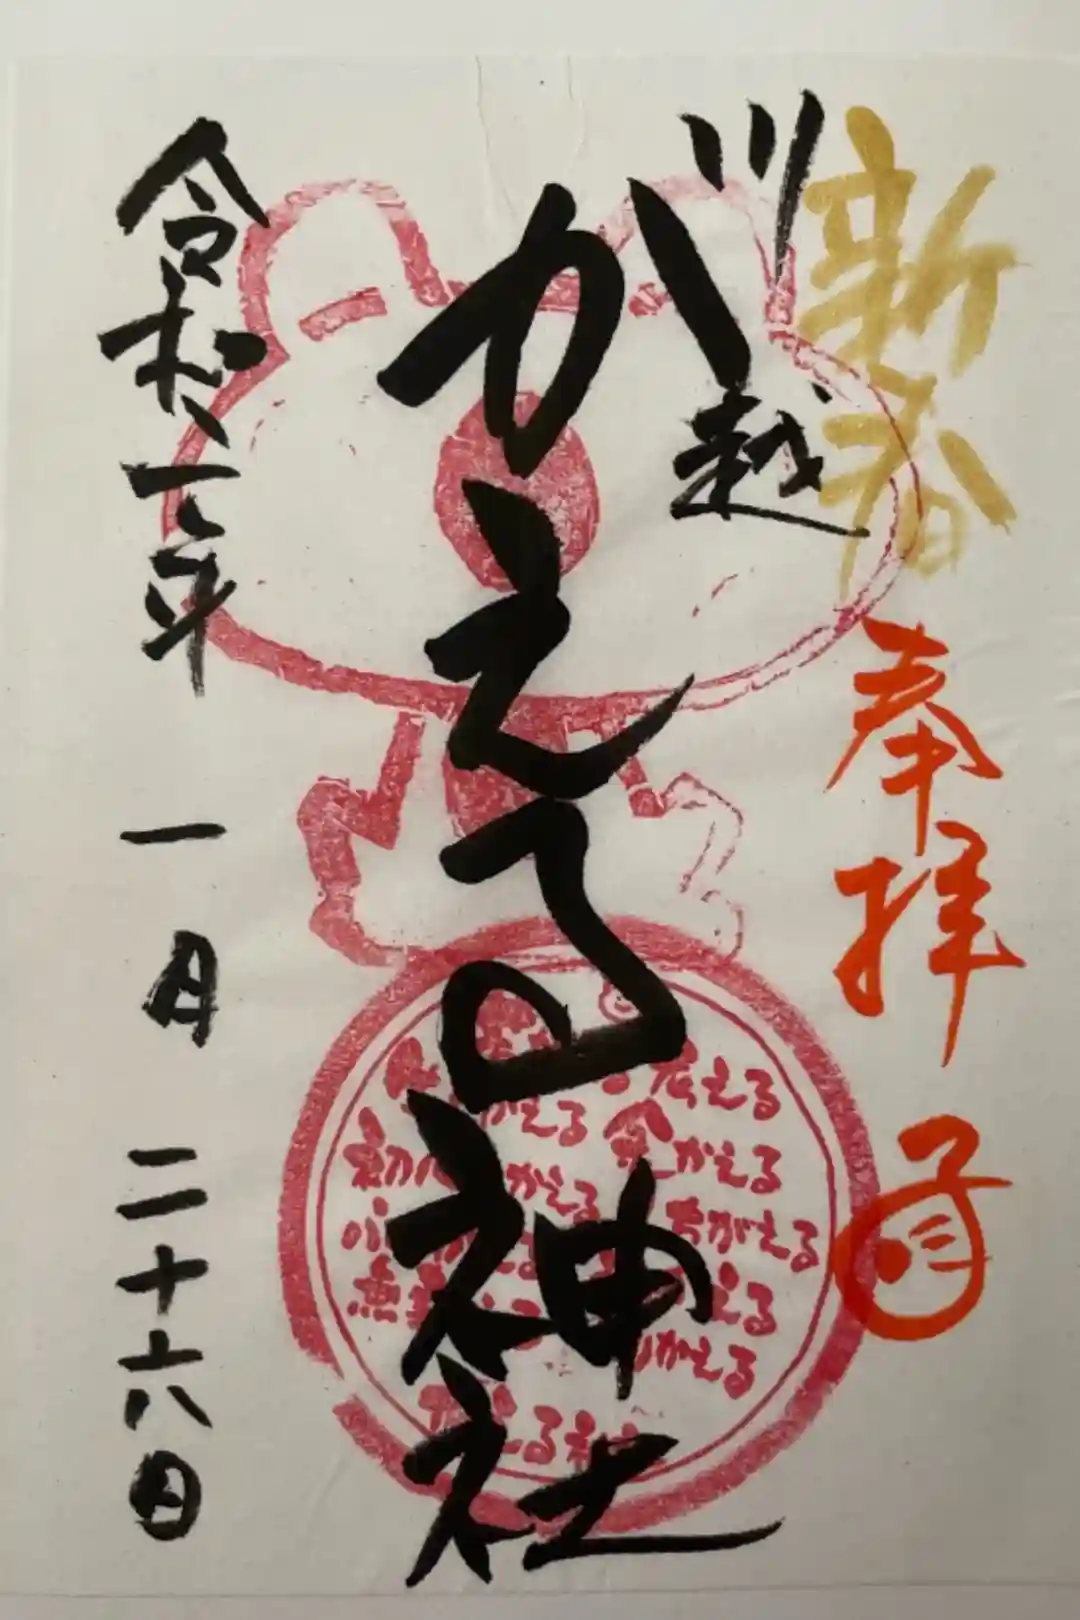 新春
奉拝
川越
かえる神社
令和二年
一月二十六日
考える
かえる
金かえる
かえる
がえる
える
かえる